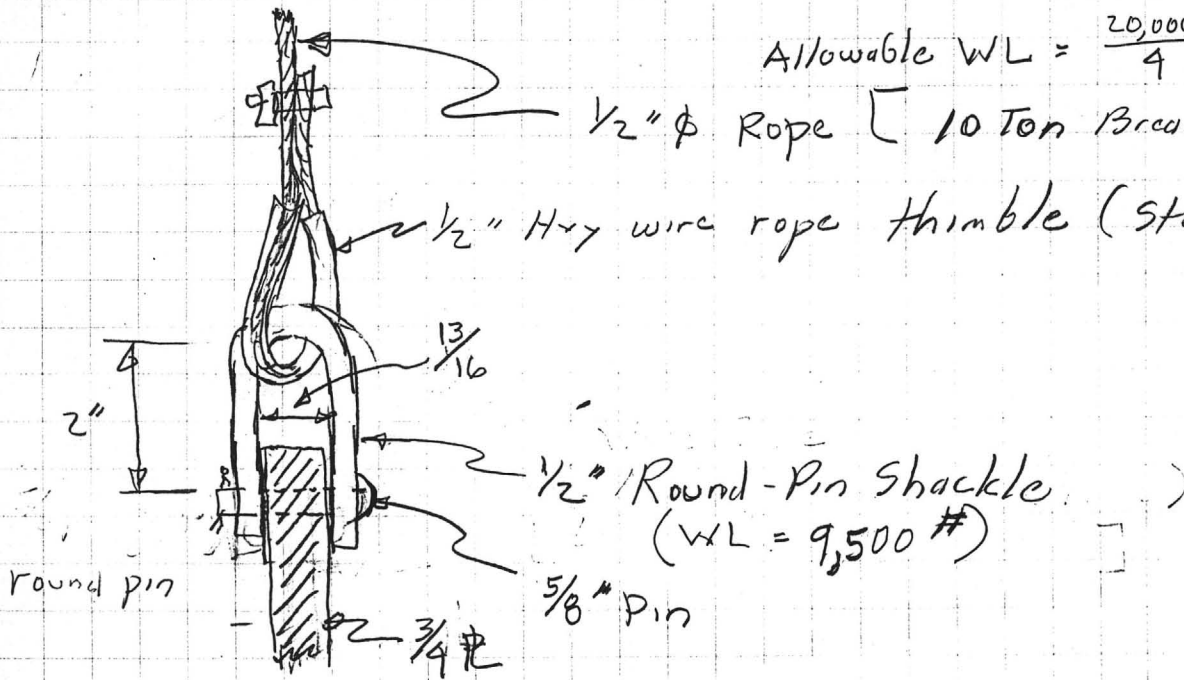 Allowable WL = 20,000/4
1/2" ϕ Rope [ 10 Ton
1/2" Hvy wire rope thimble
13/16
2"
1/2" Round-Pin Shackle )
(WL = 9,500 #) ]
round pin
5/8" Pin
3/4 ℄